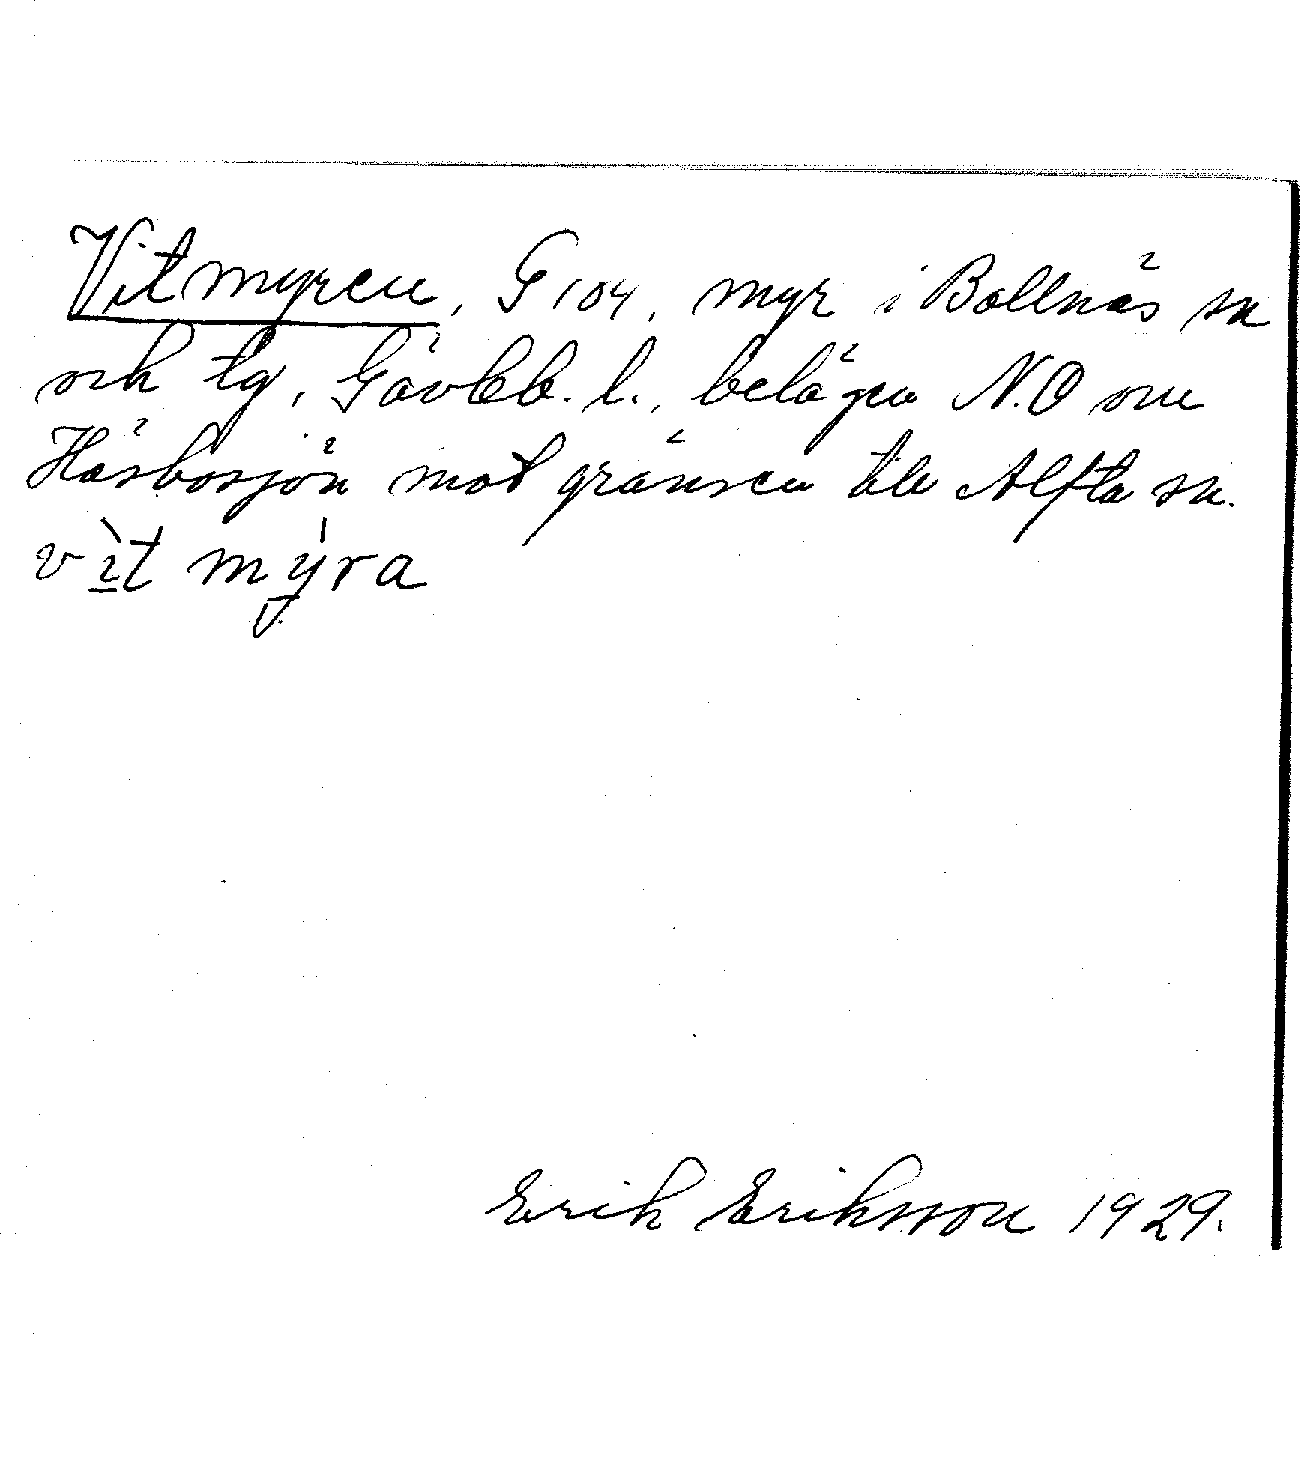 Vitmyren, G 104, myr i Bollnäs sn
och tg, Gävleb. l., belägen N.O om
Häsbosjön mot gränsen till Alfta sn.
vìt mỳra
Erik Eriksson 1929.